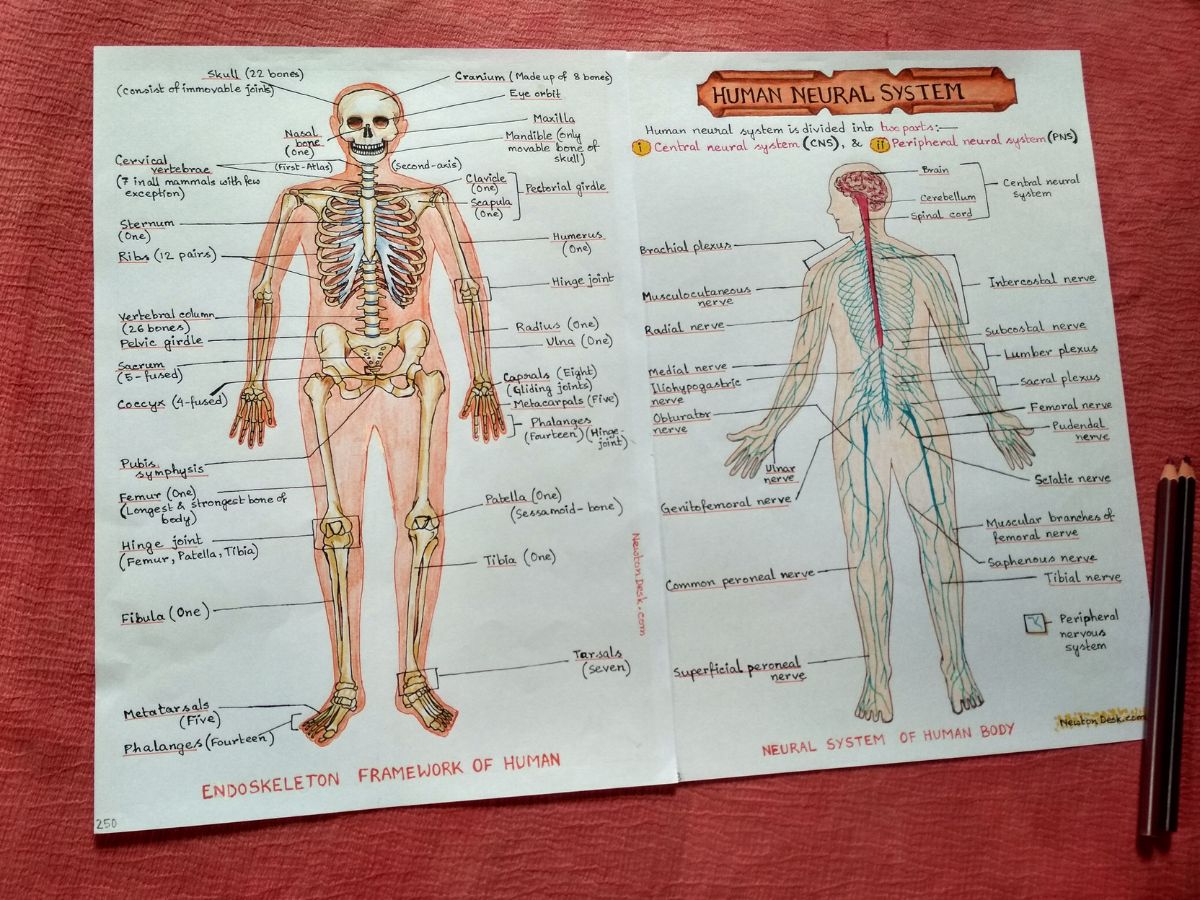 Skull (22 bones)
(consist of immovable joint)
Nasal
bone
(One)
Cervical
vertebrae
(7 in all mammals with few
exception)
(First-Atlas)
(Second-axis)
Sternum
(One)
Ribs (12 pairs)
Vertebral column
(26 bones)
Pelvic girdle
Sacrum
(5-fused)
Coccyx (4-fused)
Pubis
symphysis
Femur (One)
(Longest & strongest bone of
body)
Hinge joint
(Femur, Patella, Tibia)
Fibula (One)
Metatarsals
(Five)
Phalanges (Fourteen)
Cranium (Made up of 8 bones)
Eye orbit
Maxilla
Mandible (only
movable bone of
skull)
Clavicle
(One)
Scapula
(One)
Pectorial girdle
Humerus
(One)
Hinge joint
Radius (One)
Ulna (One)
Caprals (Eight)
(Gliding joints)
Metacarpals (Five)
Phalanges
(Fourteen) (Hinge-
joint)
Patella (One)
(Sessamoid-bone)
Tibia (One)
Tarsals
(Seven)
NewtonDesk.com
ENDOSKELETON FRAMEWORK OF HUMAN
250
HUMAN NEURAL SYSTEM
Human neural system is divided into two parts:—
i Central neural system (CNS), & ii Peripheral neural system (PNS)
Brain
Cerebellum
Spinal cord
Central neural
system
Brachial plexus
Musculocutaneous
nerve
Radial nerve
Medial nerve
Iliohypogastric
nerve
Obturator
nerve
Ulnar
nerve
Genitofemoral nerve
Common peroneal nerve
Superficial peroneal
nerve
Intercostal nerve
Subcostal nerve
Lumber plexus
Sacral plexus
Femoral nerve
Pudendal
nerve
Sciatic nerve
Muscular branches of
femoral nerve
Saphenous nerve
Tibial nerve
Peripheral
nervous
system
NewtonDesk.com
NEURAL SYSTEM OF HUMAN BODY